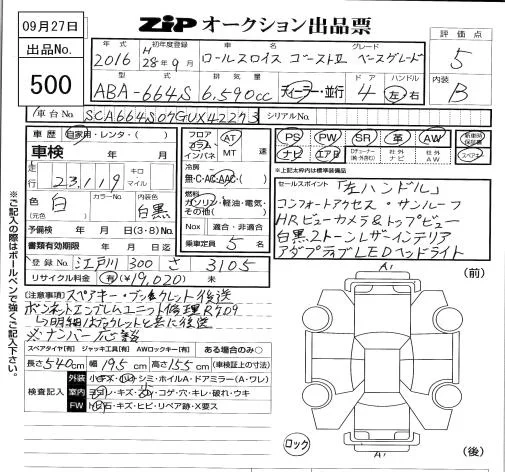 09月27日
ZiP オークション出品票
出品No.
500
年式
2016
初年度登録
H 28年9月
車名
ロールスロイス ゴーストII
グレード
ベースグレード
評価点
5
型式
ABA-664S
排気量
6,590cc
ディーラー・並行
ドア
4
ハンドル
左・右
内装
B
車台No
SCA664S07GUX42273
シリアルNo.
車歴 自家用・レンタ・( )
フロア
コラム
インパネ
AT
MT 速
PS PW SR 革 AW
ナビ エアB Dチューナー(純・外含む) 社外ナビ 社外AW
新車時保証書
スペアキー
※上記太枠内は標準装備品
車検 年 月 日
冷房
無・C・AC・AAC・( )
走行 23,119 キロ マイル
燃料
ガソリン・軽油・電気・その他( )
色 白 (元色 )
カラーNo.
内装色 白黒
Nox 適合・非適合
予備検 年 月 日(3・8)No.
書類有効期限 年 月 日迄
乗車定員 5 名
登録No 江戸川 300 さ 3105
リサイクル料金 有(¥19,020) 未
セールスポイント 「左ハンドル」
コンフォートアクセス・サンルーフ
HRビューカメラ&トップビュー
白黒2トーンレザーインテリア
アダプティブLEDヘッドライト
[注意事項] スペアキー・ブックレット後送
ボンネットエンブレムユニット修理
※ナンバー応談
スペアタイヤ[有] ジャッキ工具[有] AWロックキー[有] ある場合のみ○
長さ540cm 幅195cm 高さ155cm (車検証上の寸法)
検査記入
外装
室内
FW
A1
(前)
ロック
A1
(後)
※ご記入の際はボールペンで強くご記入下さい。